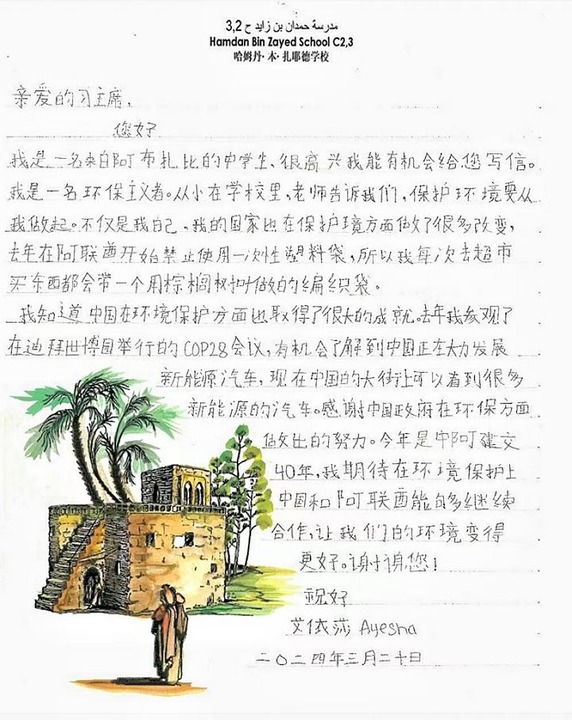 مدرسة حمدان بن زايد ح 3,2
Hamdan Bin Zayed School C2,3
哈姆丹·本·扎耶德学校
亲爱的习主席,
您好
我是一名来自阿布扎比的中学生、很高兴我能有机会给您写信。
我是一名环保主义者。从小在学校里,老师告诉我们,保护环境要从
我做起。不仅是我自己,我的国家也在保护环境方面做了很多改变,
去年在阿联酋开始禁止使用一次性塑料袋,所以我每次去超市
买东西都会带一个用棕榈树叶做的编织袋。
我知道中国在环境保护方面也取得了很大的成就。去年我参观了
在迪拜世博园举行的COP28会议,有机会了解到中国正在大力发展
新能源汽车,现在中国的大街上可以看到很多
新能源的汽车。感谢中国政府在环保方面
做出的努力。今年是中阿建交
40年,我期待在环境保护上
中国和阿联酋能够多继续
合作,让我们的环境变得
更好。谢谢您!
祝好
艾依莎 Ayesha
二〇二四年三月二十日